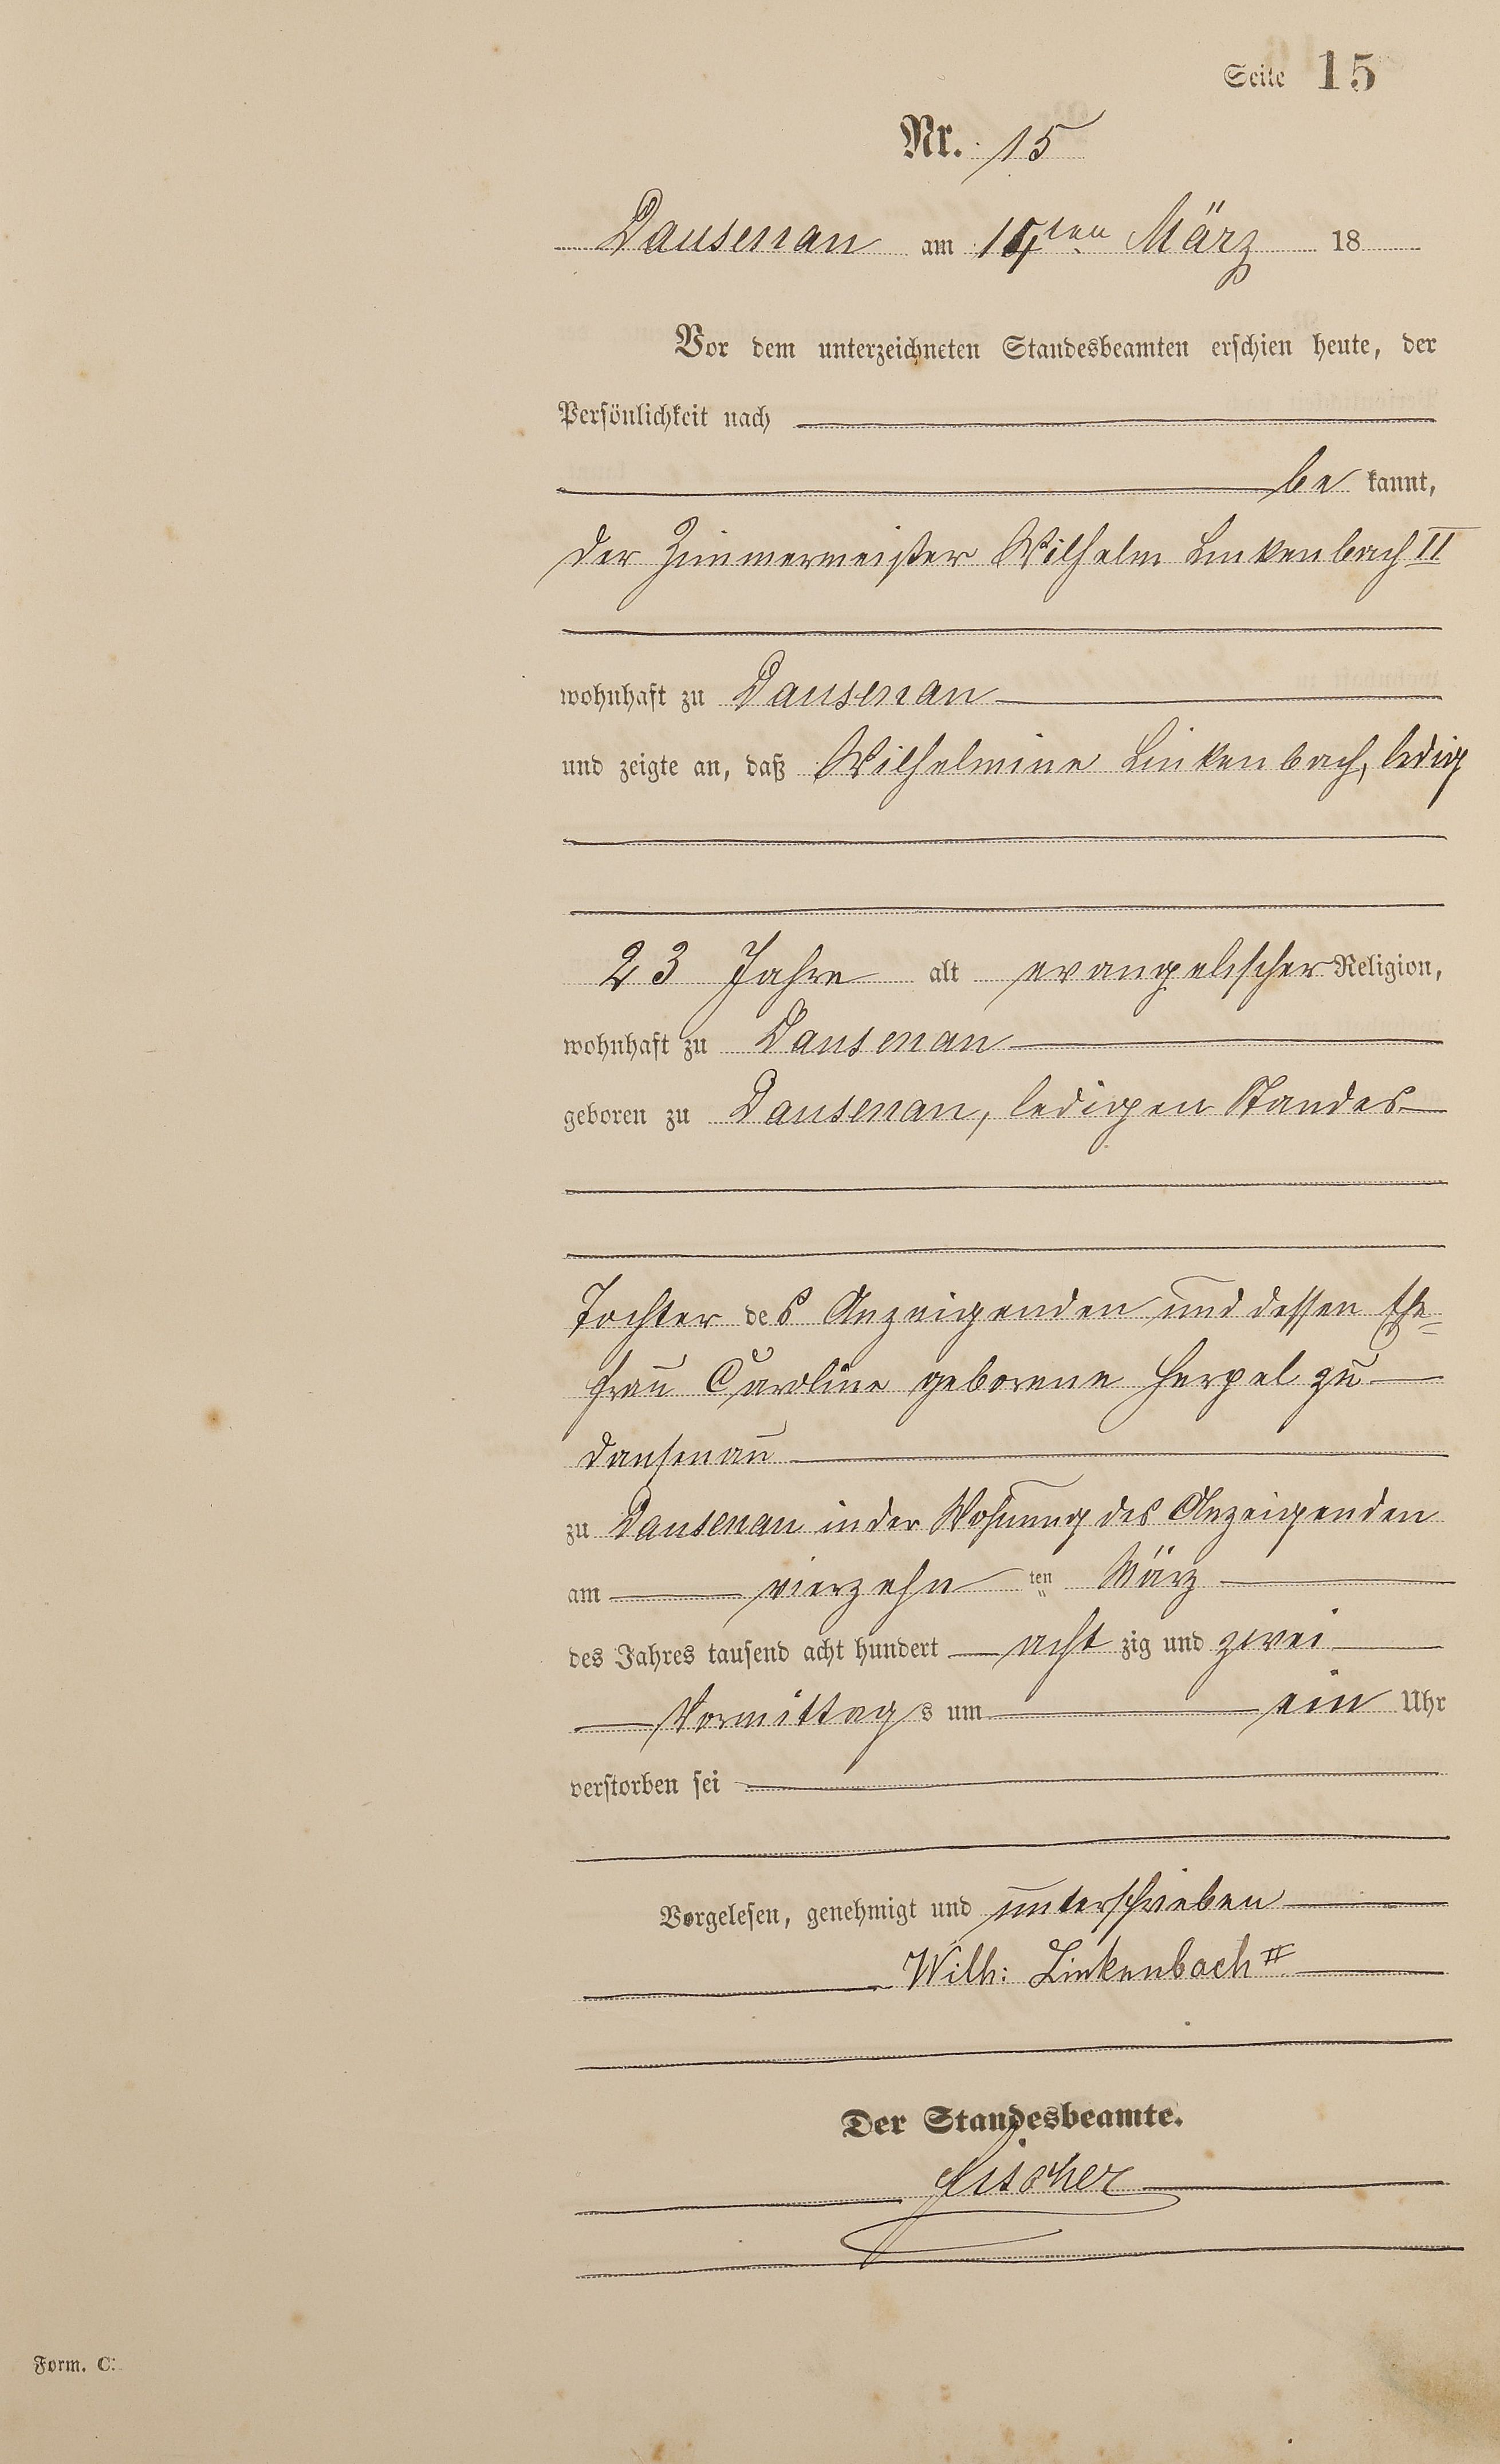 Seite 15
Nr. 15
Dausenau am 14ten März 18
Vor dem unterzeichneten Standesbeamten erschien heute, der
Persönlichkeit nach
be kannt,
der Zimmermeister Wilhelm Linkenbach II
wohnhaft zu Dausenau
und zeigte an, daß Wilhelmine Linkenbach, ledig
23 Jahre alt evangelischer Religion,
wohnhaft zu Dausenau
geboren zu Dausenau, ledigen Standes
Tochter des Anzeigenden und dessen Ehe=
frau Caroline geborene Herpel zu
Dausenau
zu Dausenau in der Wohnung des Anzeigenden
am vierzehn ten März
des Jahres tausend acht hundert acht zig und zwei
Vormittag s um ein Uhr
verstorben sei
Vorgelesen, genehmigt und unterschrieben
Wilh: Linkenbach II
Der Standesbeamte.
Fischer
Form. C.